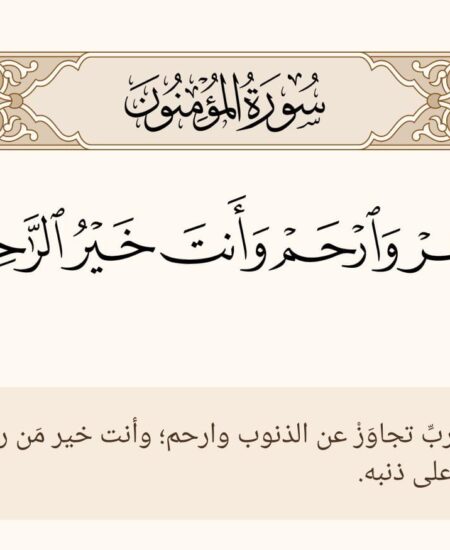 سُورَةُ المُؤْمِنُونَ
وَٱرْحَمْ وَأَنتَ خَيْرُ
ربِّ تجاوَزْ عن الذنوب وارحم؛ وأنت خير مَن
على ذنبه.